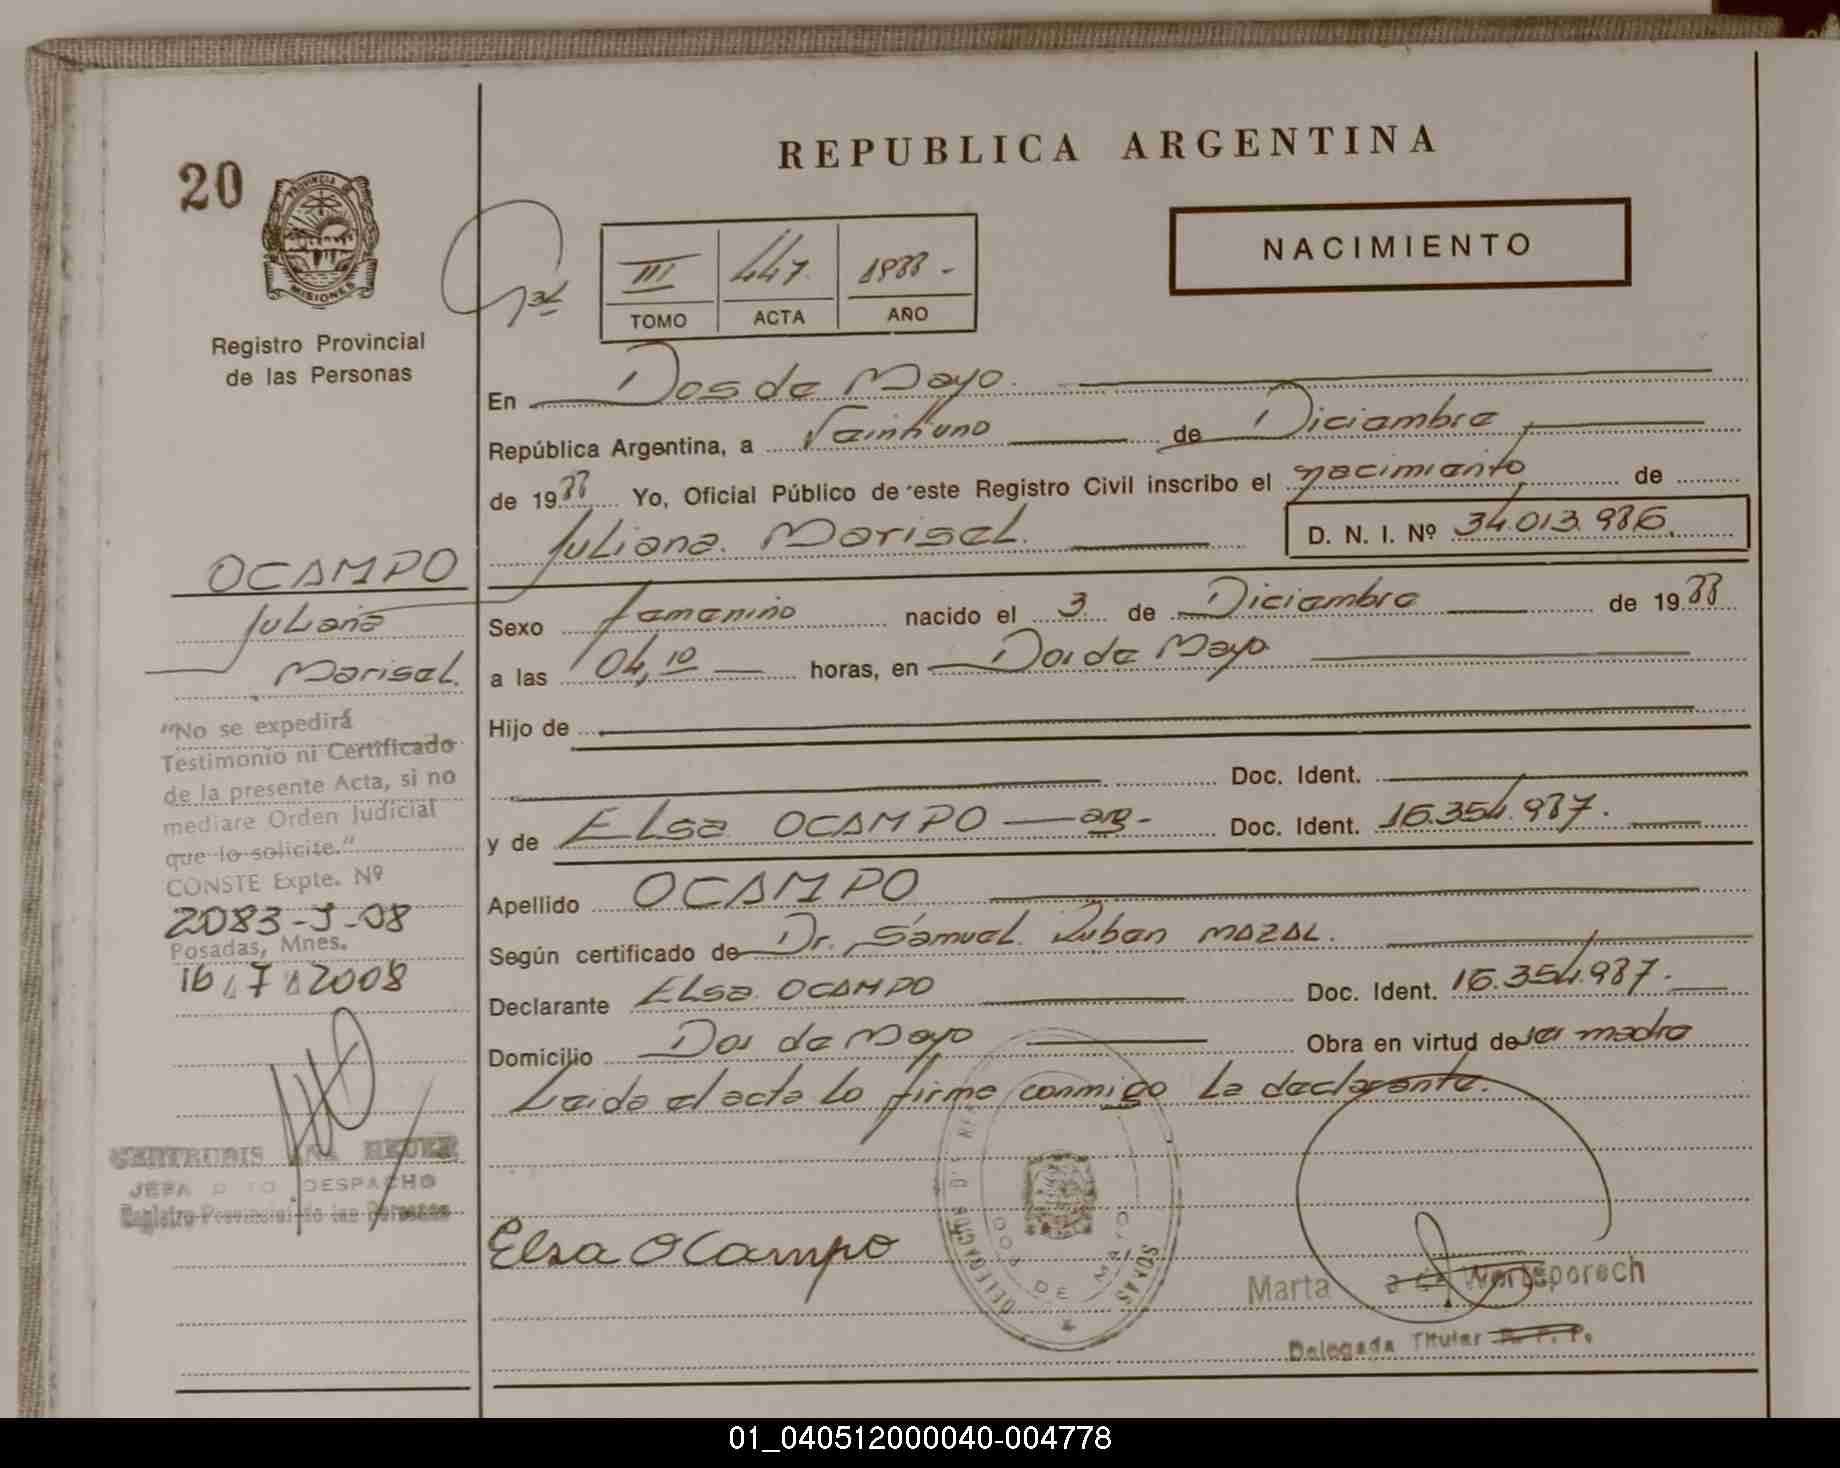 REPUBLICA ARGENTINA
20
PROVINCIA DE
MISIONES
Registro Provincial
de las Personas
III 447. 1988 -
TOMO ACTA AÑO
NACIMIENTO
En Dos de Mayo.
República Argentina, a Veintiuno de Diciembre
de 1988 Yo, Oficial Público de este Registro Civil inscribo el nacimiento de
Juliana Marisel. D. N. I. Nº 34.013.986.
Sexo femenino nacido el 3 de Diciembre de 1988
a las 04,10 horas, en Dos de Mayo
Hijo de
Doc. Ident.
y de Elsa OCAMPO — arg - Doc. Ident. 16.354.987.
Apellido OCAMPO
Según certificado de Dr. Samuel Ruben MAZAL.
Declarante Elsa OCAMPO Doc. Ident. 16.354.987.
Domicilio Dos de Mayo Obra en virtud de ser madre
Leida el acta lo firma conmigo la declarante.
Elsa Ocampo
DELEGACION
DOS DE MAYO
Marta Wortsporech
Delegada Titular R. P. P.
OCAMPO
Juliana
Marisel.
"No se expedirá
Testimonio ni Certificado
de la presente Acta, si no
mediare Orden Judicial
que lo solicite."
CONSTE Expte. Nº
2083-J-08
Posadas, Mnes.
16 7 2008
GERTRUDIS ANA
JEFA DESPACHO
Registro Provincial de las Personas
01_040512000040-004778